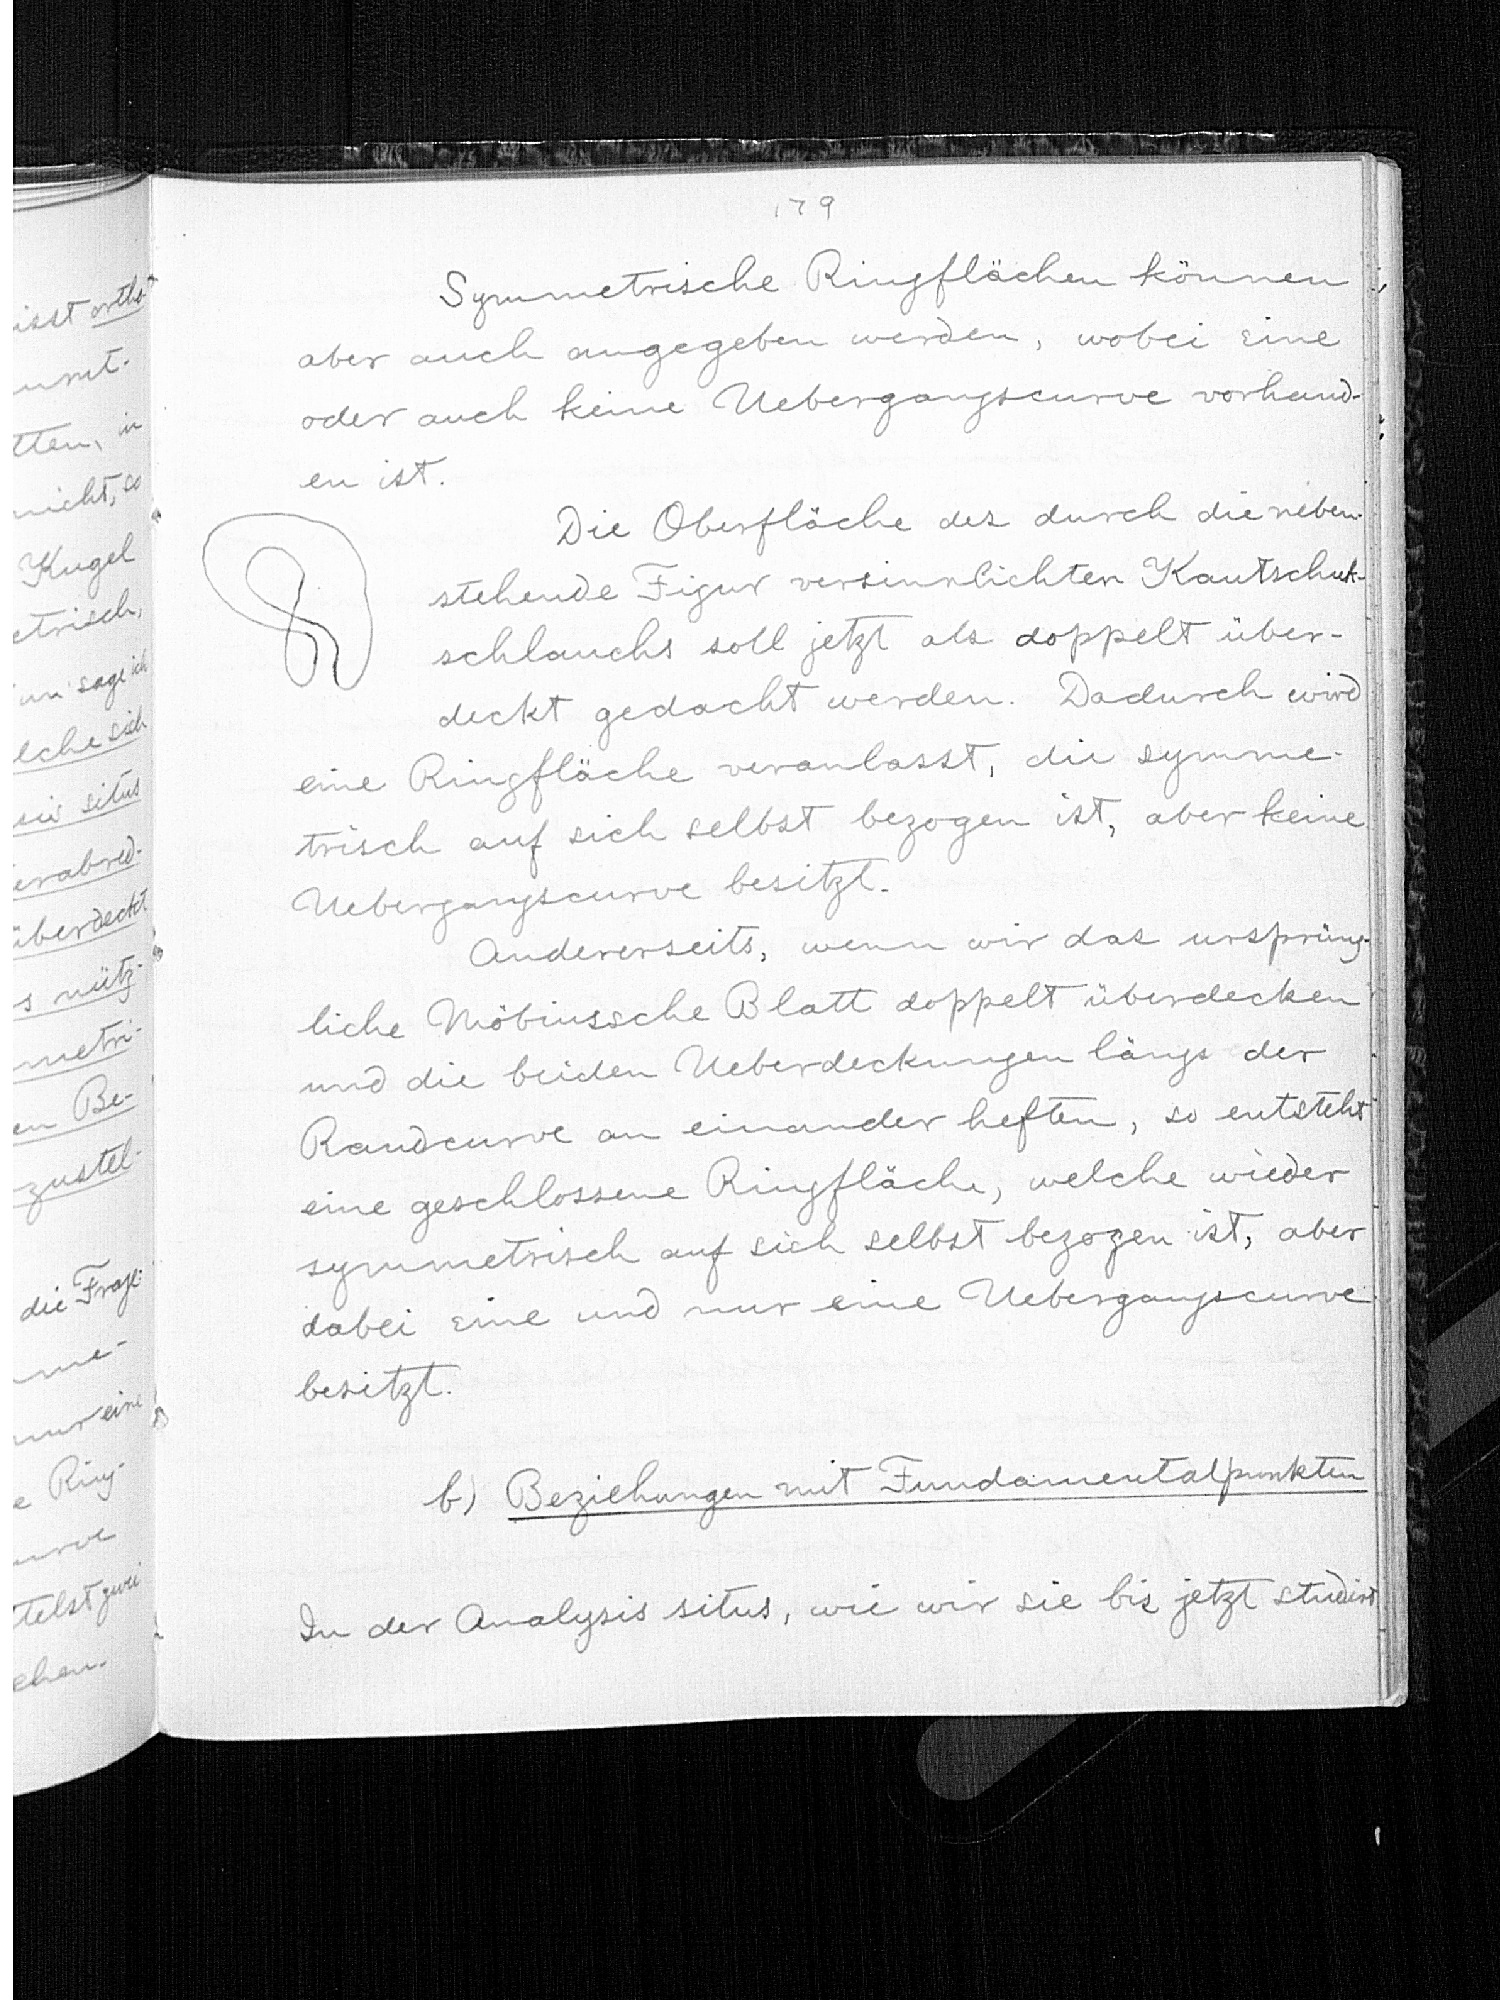 179
Symmetrische Ringflächen können
aber auch angegeben werden, wobei eine
oder auch keine Uebergangscurve vorhand-
en ist.
Die Oberfläche des durch die neben-
stehende Figur versinnlichten Kautschuk-
schlauchs soll jetzt als doppelt über-
deckt gedacht werden. Dadurch wird
eine Ringfläche veranlasst, die symme-
trisch auf sich selbst bezogen ist, aber keine
Uebergangscurve besitzt.
Andererseits, wenn wir das ursprüng-
liche Möbiussche Blatt doppelt überdecken
und die beiden Ueberdeckungen längs der
Randcurve an einander heften, so entsteht
eine geschlossene Ringfläche, welche wieder
symmetrisch auf sich selbst bezogen ist, aber
dabei eine und nur eine Uebergangscurve
besitzt.
b) Beziehungen mit Fundamentalpunkten
In der Analysis situs, wie wir sie bis jetzt studirt
isst orths-
tten, in
nicht, so
Kugel
etrisch,
sage ich
lche sich
situs
verabred-
überdeckt
s nütz-
metri-
en Be-
zustel-
die Frage:
me-
nur eine
e Ring-
urve
ttelst zwei
ehen.